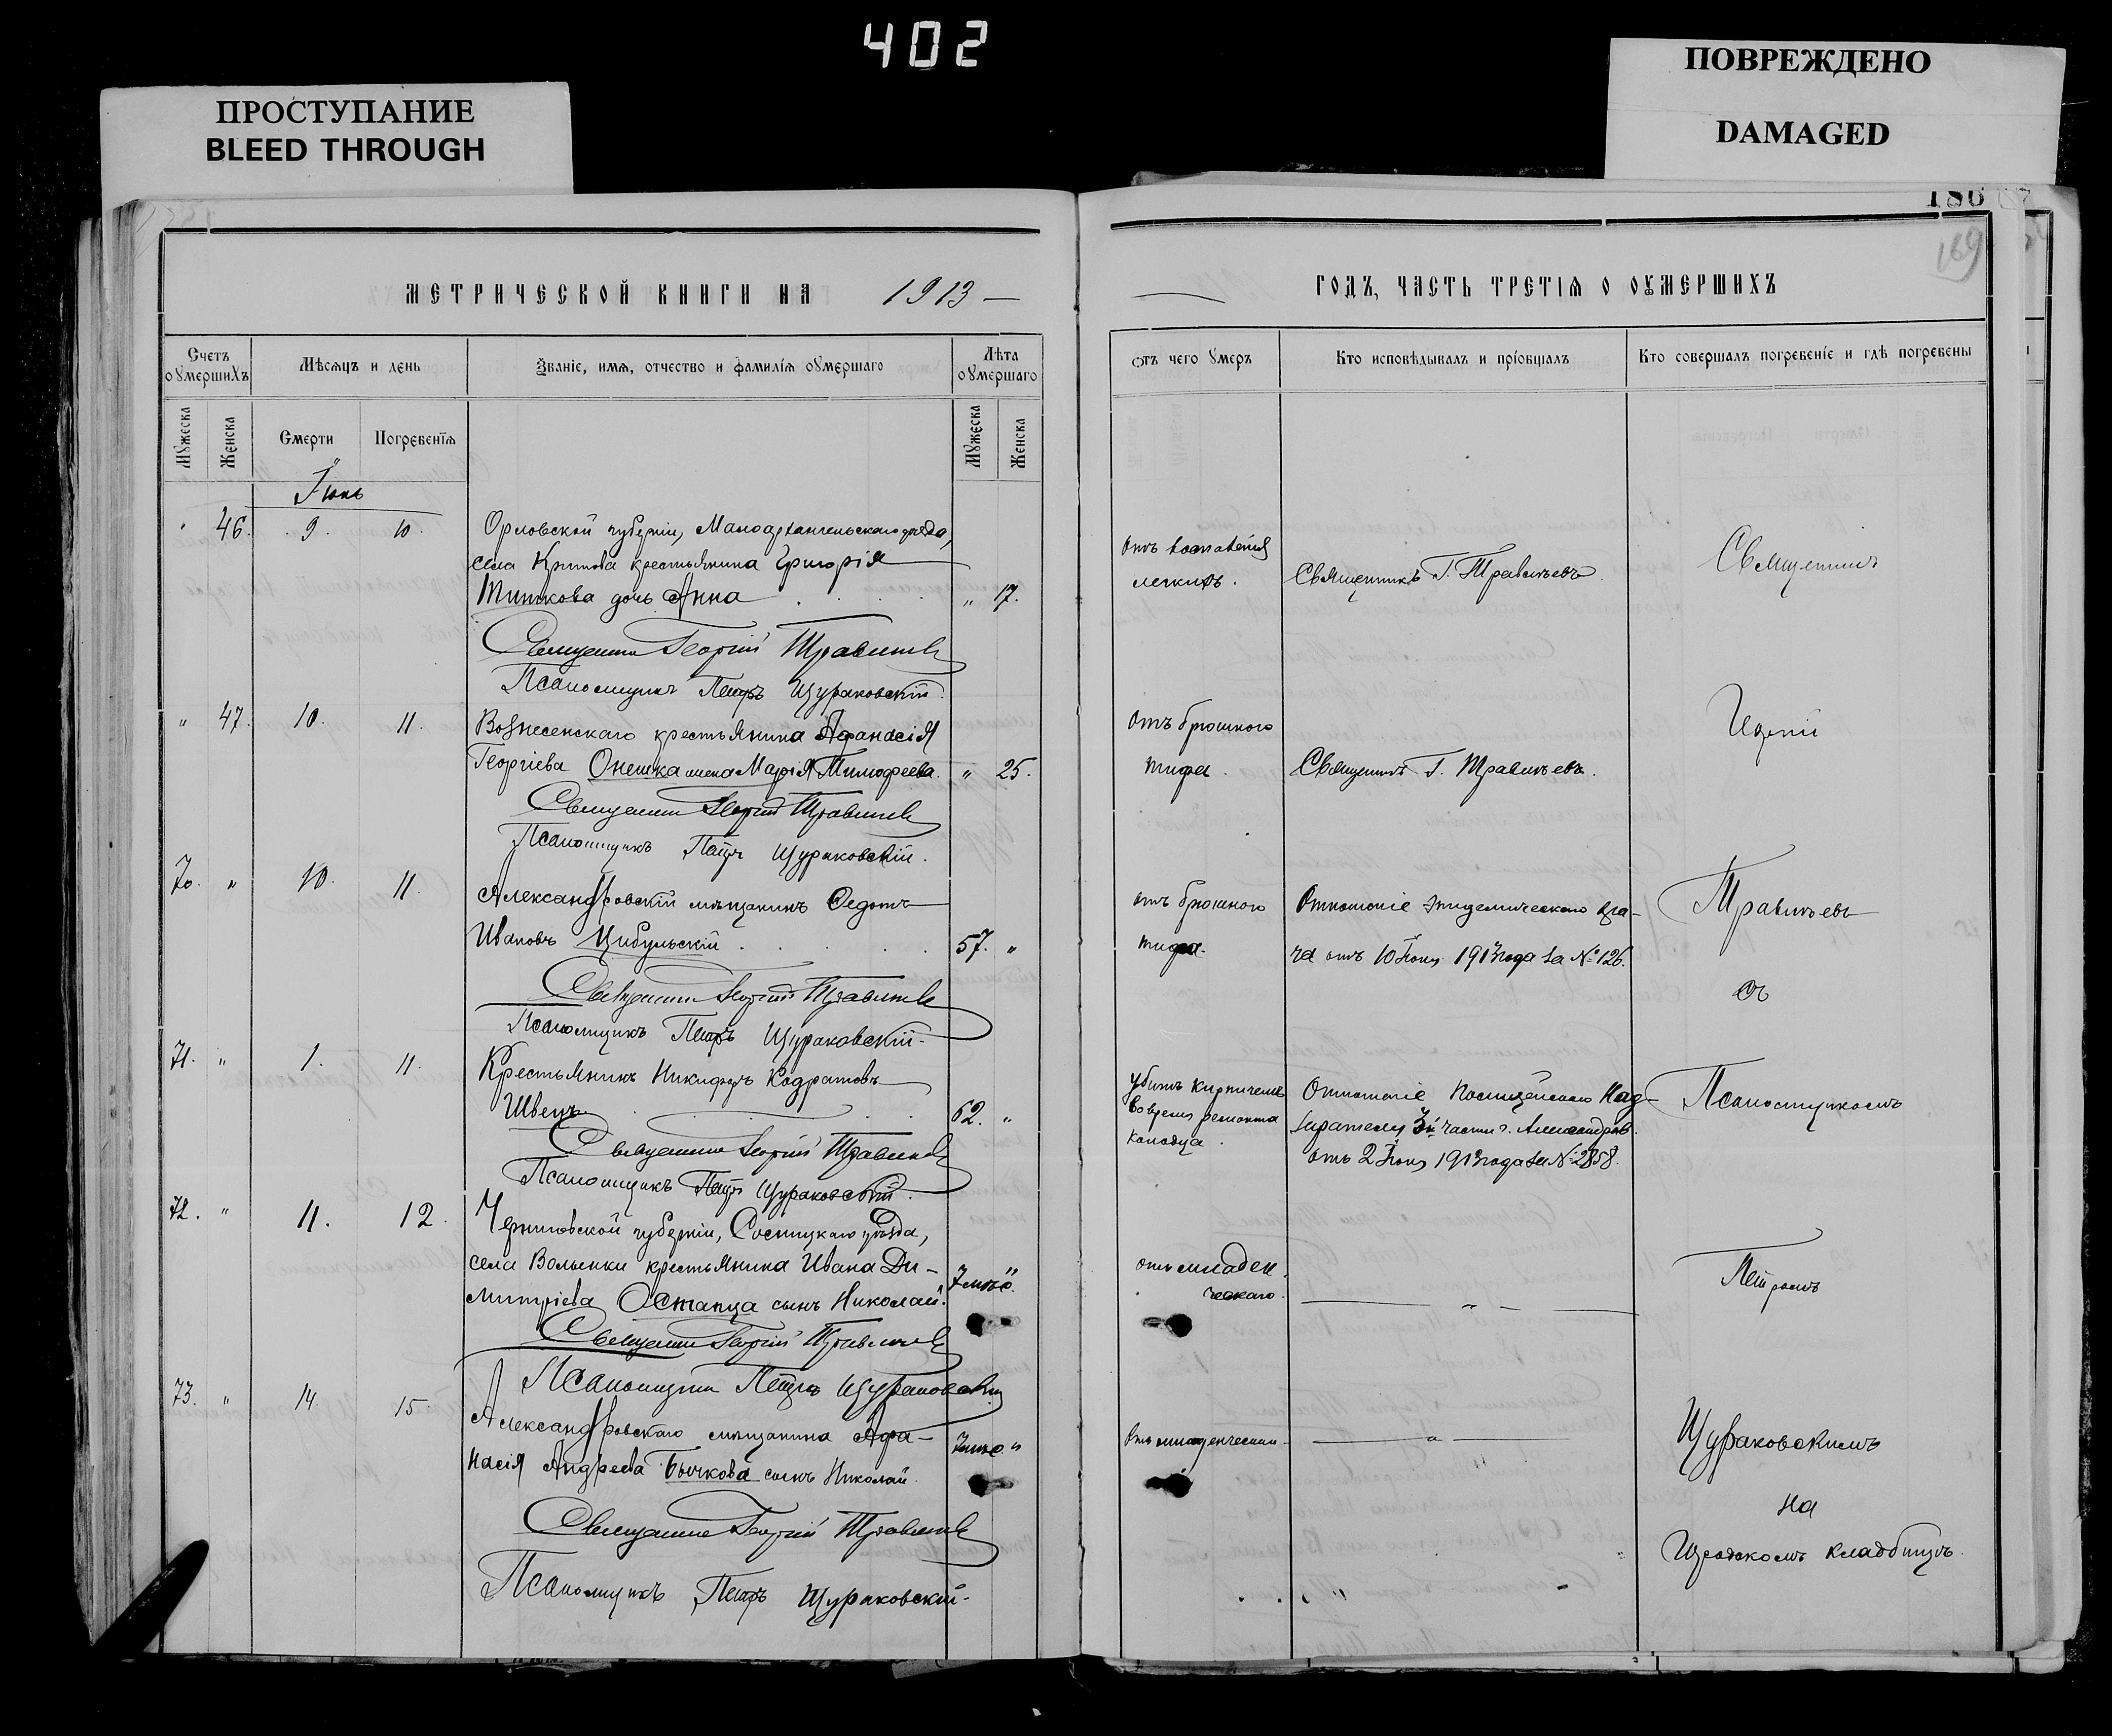 402
ПРОСТУПАНИЕ
BLEED THROUGH
ПОВРЕЖДЕНО
DAMAGED
186
169
МЕТРИЧЕСКОЙ КНИГИ НА 1913
ГОДЪ, ЧАСТЬ ТРЕТІЯ О ОУМЕРШИХЪ
Счетъ оумершихъ
Мѣсяцъ и день
Званіе, имя, отчество и фамилія оумершаго
Лѣта оумершаго
Отъ чего умеръ
Кто исповѣдывалъ и пріобщалъ
Кто совершалъ погребеніе и гдѣ погребены
Мужеска
Женска
Смерти
Погребенія
Мужеска
Женска
Іюнь
" 46. 9. 10.
Орловской губерніи, Малоархангельскаго уѣзда,
села крестьянина Григорія
Титкова дочь Анна " 17.
Отъ воспаленія
легкихъ.
Священникъ Г. Травинъевъ.
Священникъ
Священникъ Георгій Травинъевъ
Псаломщикъ Петръ Щураковскій.
" 47. 10. 11.
Вознесенскаго крестьянина Афанасія
Георгіева Онешка жена Марія Тимофеева. " 25.
Отъ брюшного
тифа.
Священникъ Г. Травинъевъ.
Священникъ Георгій Травинъевъ
Псаломщикъ Петръ Щураковскій.
70. " 10. 11.
Александровскій мѣщанинъ Федотъ
Ивановъ Цибульскій 57. "
Отъ брюшного
тифа.
Отношеніе эпидемическаго вра-
ча отъ 10 Іюня 1913 года за № 126.
Травинъевъ
съ
Священникъ Георгій Травинъевъ
Псаломщикъ Петръ Щураковскій.
71. " 1. 11.
Крестьянинъ Никифоръ Кодратовъ
Швецъ 62. "
Убитъ кирпичемъ
во время ремонта
колодца.
Отношеніе Полицейскаго Над-
зирателя 3й части г. Александров.
отъ 2 Іюня 1913 года за № 2858.
Псаломщикомъ
Священникъ Георгій Травинъевъ
Псаломщикъ Петръ Щураковскій.
72. " 11. 12.
Черниговской губерніи, Сосницкаго уѣзда,
села Волынки крестьянина Ивана Ди-
митріева Остапца сынъ Николай. 7 "
Отъ младен
ческаго.
"
Петромъ
Священникъ Георгій Травинъевъ
Псаломщикъ Петръ Щураковскій
73. " 14. 15
Александровскаго мѣщанина Афа-
насія Андреева Бычкова сынъ Николай. "
Отъ младенческаго
"
Щураковскимъ
на
городскомъ кладбищѣ.
Священникъ Георгій Травинъевъ
Псаломщикъ Петръ Щураковскій.